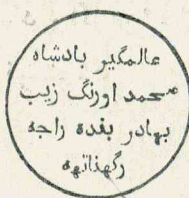 عالمگیر بادشاه
محمد اورنگ زیب
بهادر بنده راجه
رگهناتهه